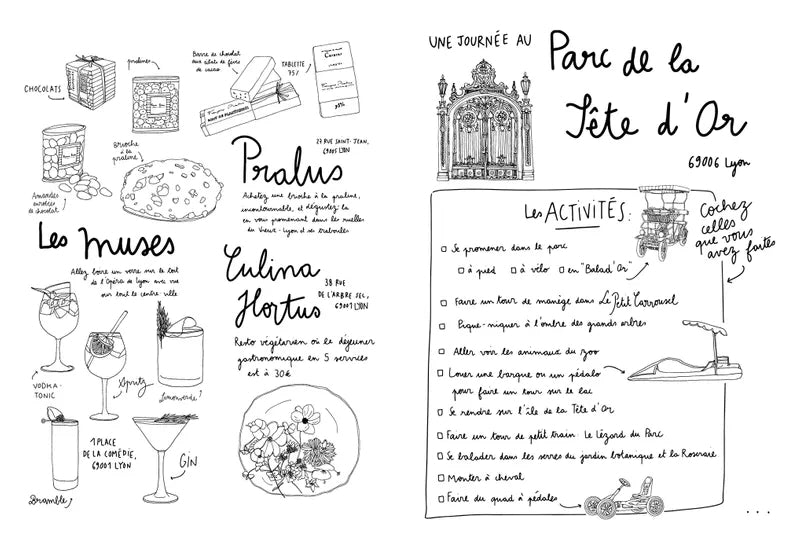 CHOCOLATS
pralines
Barre de chocolat
aux éclats de fèves
de cacao
TABLETTE
75%
75%
Brioche
à la
praline
Amandes
enrobées
de chocolat
Pralus
27 RUE SAINT-JEAN,
69005 LYON
Achetez une brioche à la praline,
incontournable, et dégustez-la
en vous promenant dans les ruelles
du Vieux-Lyon et ses traboules
Les Muses
Allez boire un verre sur le toit
de l'Opéra de Lyon avec vue
sur tout le centre-ville
VODKA-
TONIC
Spritz
Limoncello?
Bramble
1 PLACE
DE LA COMÉDIE,
69001 LYON
GIN
Culina
Hortus
38 RUE
DE L'ARBRE SEC,
69001 LYON
Resto végétarien où le déjeuner
gastronomique en 5 services
est à 30€
UNE JOURNÉE AU
Parc de la
Tête d'Or
69006 Lyon
Les ACTIVITÉS:
Cochez
celles
que vous
avez faites
Se promener dans le parc
à pied à vélo en "Balad'Or"
Faire un tour de manège dans Le Petit Carrousel
Pique-niquer à l'ombre des grands arbres
Aller voir les animaux du zoo
Louer une barque ou un pédalo
pour faire un tour sur le lac
Se rendre sur l'île de la Tête d'Or
Faire un tour de petit train: Le Lézard du Parc
Se balader dans les serres du jardin botanique et la Roseraie
Monter à cheval
Faire du quad à pédales
...